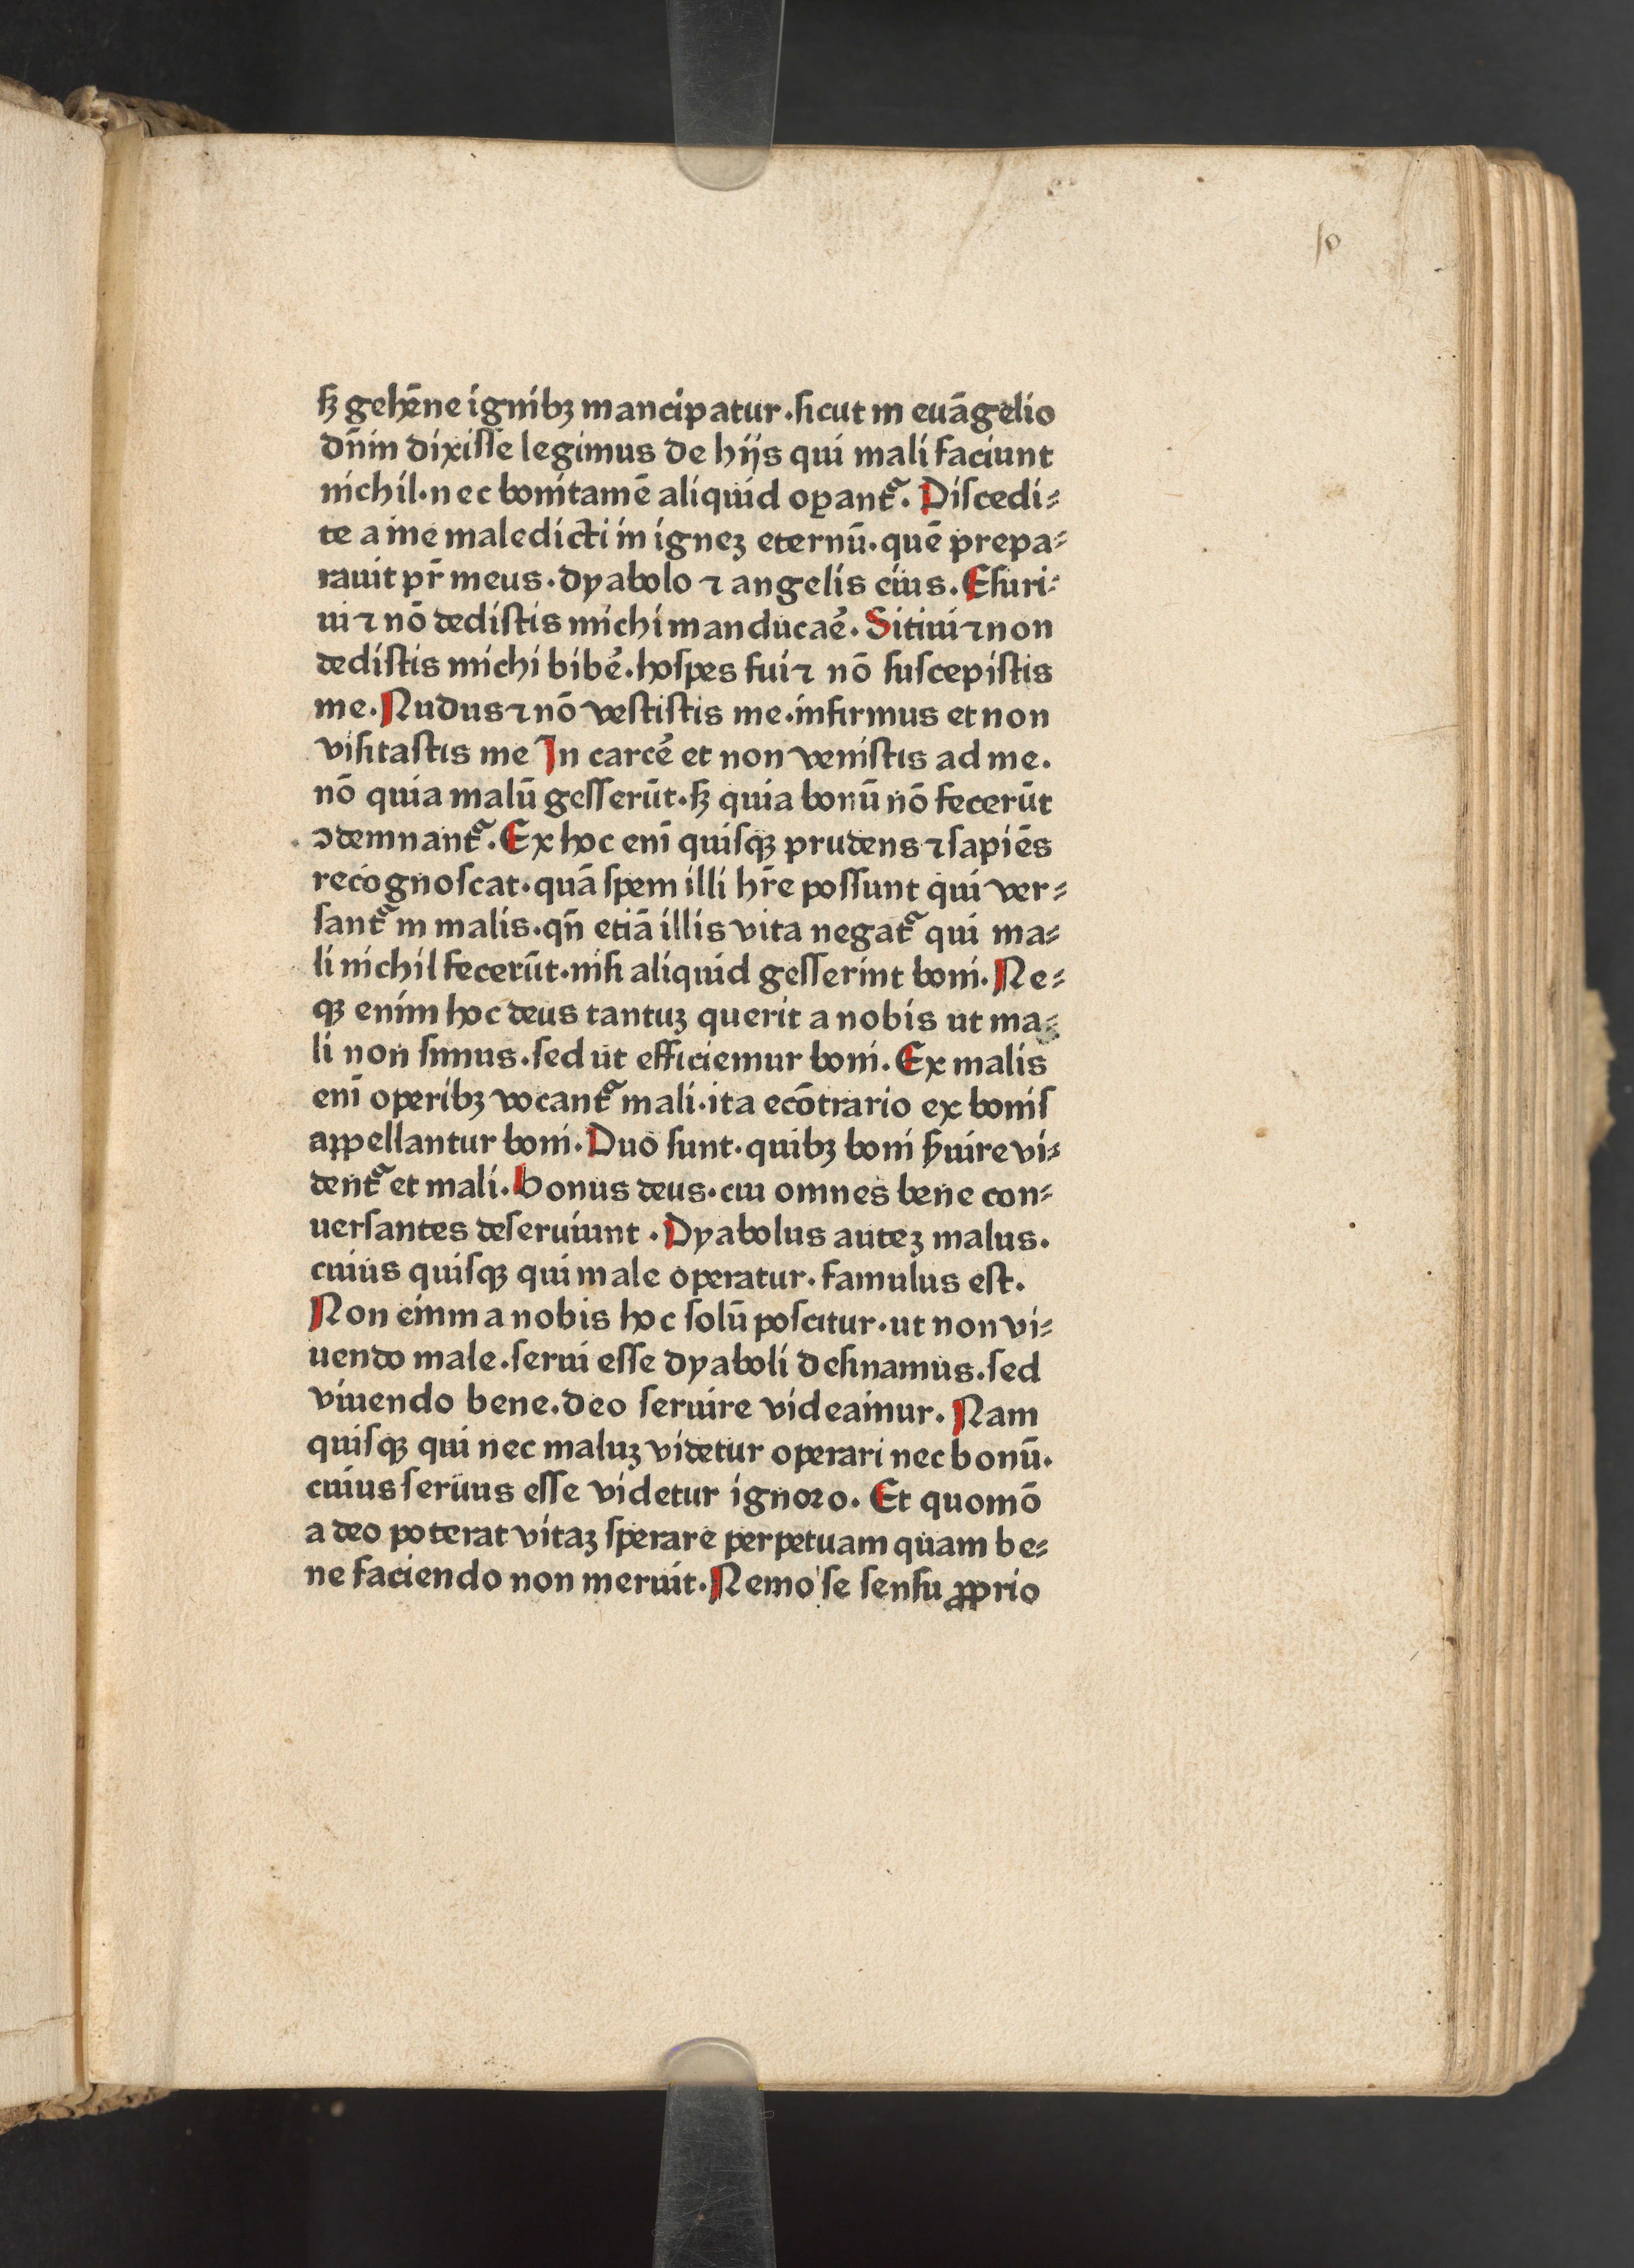 10
sꝫ gehēne ignibꝫ mancipatur·ſicut in euāgelio
dn̄m dixiſſe legimus de hijs qui mali faciunt
nichil·nec boni tamē aliquid oꝑantᷓ. Diſcedi⸗
te a me maledicti in igneꝫ eternū·quē prepa⸗
rauit pr̄ meus·dyabolo ⁊ angelis eius. Eſuri⸗
ui ⁊ nō dediſtis michi manducaē. Sitiui ⁊ non
dediſtis michi bibē·hoſpes fui ⁊ nō ſuſcepiſtis
me. Nudus ⁊ nō veſtiſtis me·infirmus et non
viſitaſtis me In carcē et non veniſtis ad me.
nō quia malū geſſerūt·sꝫ quia bonū nō fecerūt
ꝯdemnantᷓ. Ex hoc enī quiſqꝫ prudens ⁊ ſapiēs
recognoſcat·quā ſpem illi hr̄e poſſunt qui ver⸗
ſantᷓ in malis·qn̄ etiā illis vita negatᷓ qui ma⸗
li nichil fecerūt·niſi aliquid geſſerint boni. Ne⸗
qꝫ enim hoc deus tantuꝫ querit a nobis ut ma⸗
li non ſimus·ſed ut efficiemur boni. Ex malis
enī operibꝫ vocantᷓ mali·ita ecōtrario ex boniſ
appellantur boni. Duo ſunt·quibꝫ boni ẜuire vi⸗
dentᷓ et mali. bonus deus·cui omnes bene con⸗
uerſantes deſeruiunt. Dyabolus auteꝫ malus.
cuius quiſqꝫ qui male operatur·famulus eſt.
Non enim a nobis hoc ſolū poſcitur·ut non vi⸗
uendo male·ſerui eſſe dyaboli deſinamus·ſed
viuendo bene·deo ſeruire videamur. Nam
quiſqꝫ qui nec maluꝫ videtur operari nec bonū·
cuius ſeruus eſſe videtur ignoꝛo. Et quomō
a deo poterat vitaꝫ ſperare perpetuam quam be⸗
ne faciendo non meruit. Nemo se ſenſu ꝓprio